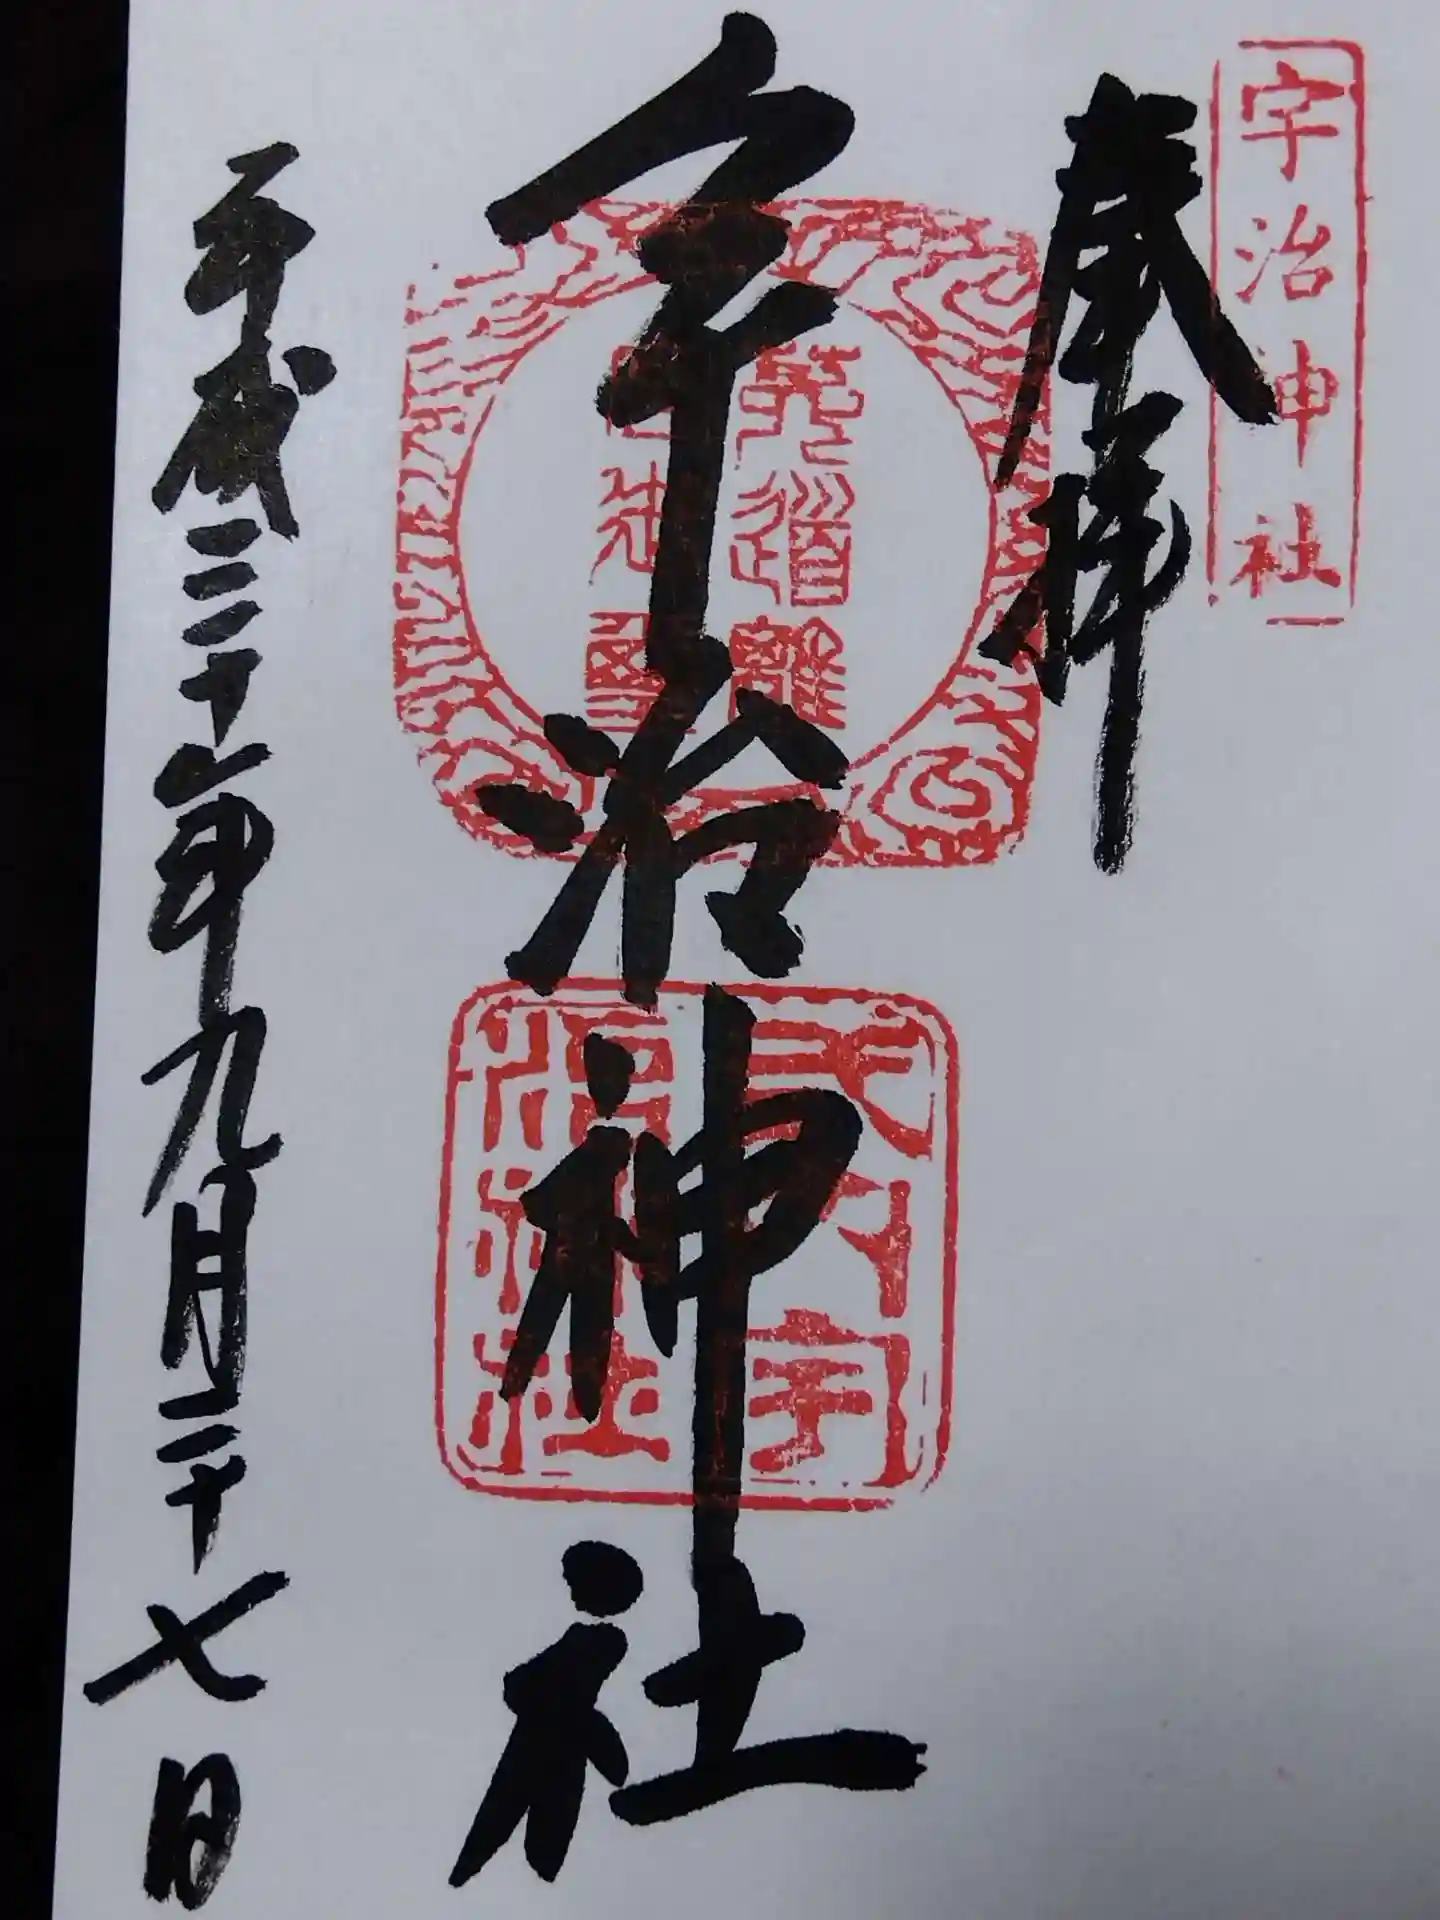 宇治神社
奉拝
宇治神社
菟道離
式内宇
治神社
平成三十年九月二十七日